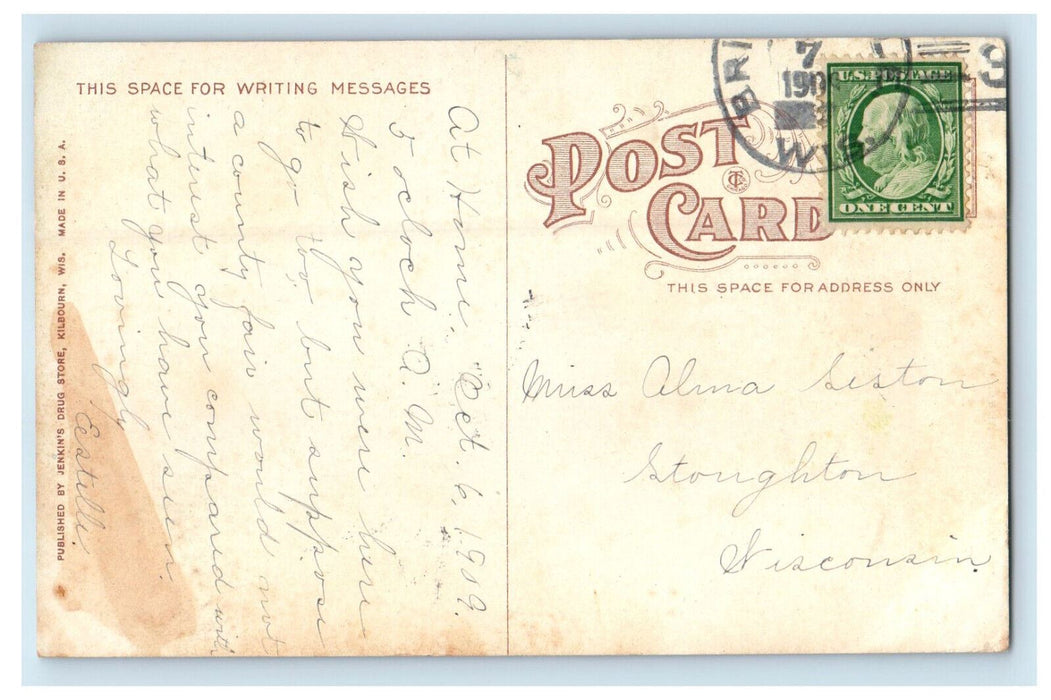 THIS SPACE FOR WRITING MESSAGES
At Home, Oct. 6, 1909.
5 o cloch A. M.
Wish you were here
to go too, but suppose
a county fair would not
interest you compared with
what you have seen.
Lovingly
Estelle.
PUBLISHED BY JENKIN'S DRUG STORE, KILBOURN, WIS. MADE IN U. S. A.
POST CARD
THIS SPACE FOR ADDRESS ONLY
BRI
7
190
WIS.
9
U.S. POSTAGE
ONE CENT
Miss Alma Siston
Stoughton
Wisconsin